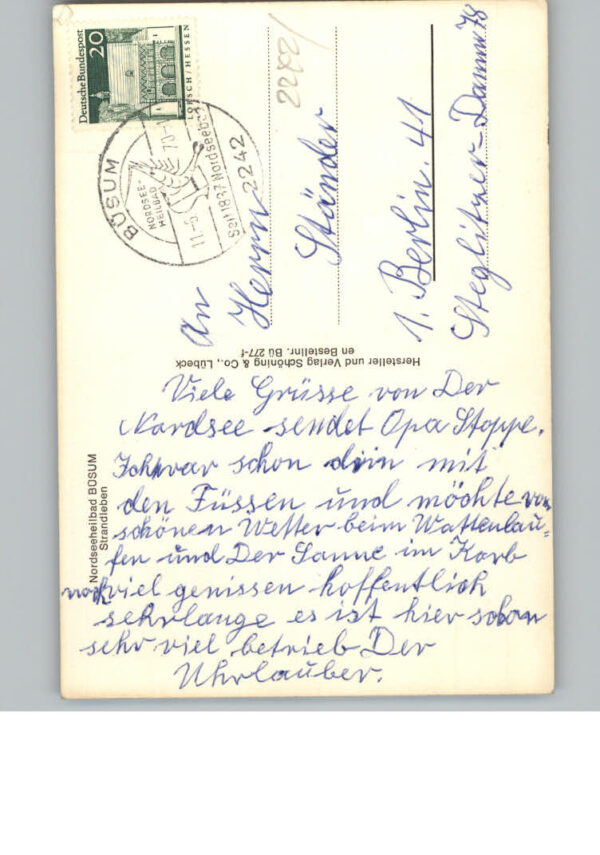 Viele Grüsse von Der
Nordsee sendet Opa Stoppe.
Ich war schon drin mit
den Füssen und möchte von
schönen Wetter beim Wattenlau=
fen und Der Sonne im Korb
noch viel genissen hoffentlich
sehr lange es ist hier schon
sehr viel betrieb Der
Uhrlauber.
Nordseeheilbad BÜSUM
Strandleben
Hersteller und Verlag Schöning & Co., Lübeck
en Bestellnr. Bü 277-f
An
Herrn
Ständer
1. Berlin. 41
Steglitzer-Damm 78
2272/
Deutsche Bundespost
20
LORSCH/HESSEN
BÜSUM
NORDSEE-
HEILBAD
Seit 1837 Nordseebad
2242